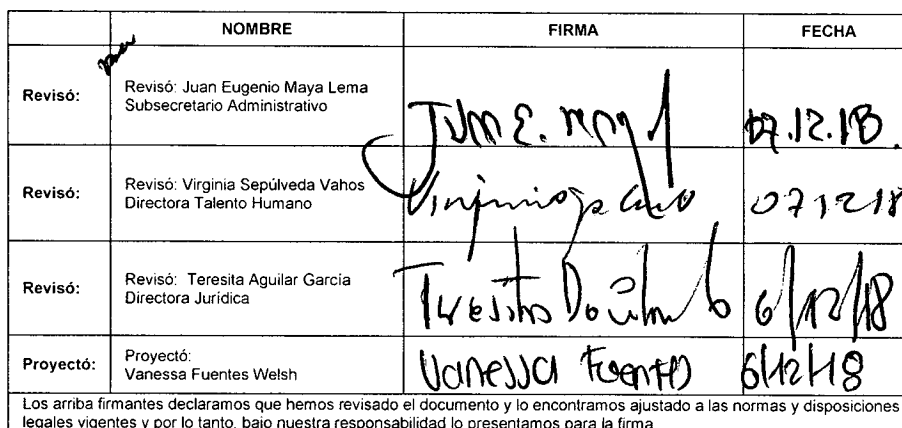 NOMBRE FIRMA FECHA
Revisó: Revisó: Juan Eugenio Maya Lema
Subsecretario Administrativo
Juan E. Maya 07.12.18.
Revisó: Revisó: Virginia Sepúlveda Vahos
Directora Talento Humano
071218
Revisó: Revisó: Teresita Aguilar García
Directora Jurídica
Teresita 6/12/18
Proyectó: Proyectó:
Vanessa Fuentes Welsh
Vanessa Fuentes 6/12/18
Los arriba firmantes declaramos que hemos revisado el documento y lo encontramos ajustado a las normas y disposiciones
legales vigentes y por lo tanto, bajo nuestra responsabilidad lo presentamos para la firma